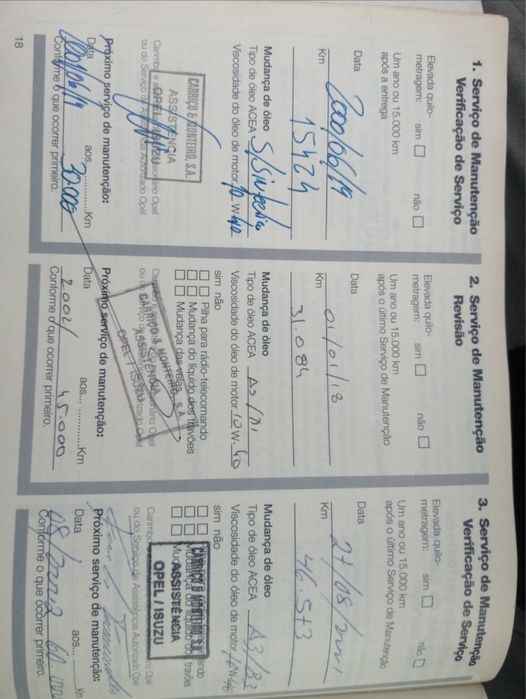 1. Serviço de Manutenção
Verificação de Serviço
Elevada quilo-
metragem: sim não
Um ano ou 15.000 km
após a entrega
Data 2000/06/19
Km 15424
Mudança de óleo
Tipo de óleo ACEA S/Sintético
Viscosidade do óleo de motor 10W40
CARRIÇO & MONTEIRO, S.A.
ASSISTÊNCIA
OPEL
Próximo serviço de manutenção:
Data aos............Km
2001/06/19 30.000
Conforme o que ocorrer primeiro.
18
2. Serviço de Manutenção
Revisão
Elevada quilo-
metragem: sim não
Um ano ou 15.000 km
após o último Serviço de Manutenção
Data 01/01/18
Km 31.084
Mudança de óleo
Tipo de óleo ACEA
Viscosidade do óleo de motor 10W-40
sim não
Pilha para rádio-telecomando
Mudança do líquido dos travões
Mudança das velas
CARRIÇO & MONTEIRO, S.A.
ASSISTÊNCIA
OPEL / ISUZU
Próximo serviço de manutenção:
Data aos............Km
2002/ 45.000
Conforme o que ocorrer primeiro.
3. Serviço de Manutenção
Verificação de Serviço
Elevada quilo-
metragem: sim não
Um ano ou 15.000 km
após o último Serviço de Manutenção
Data 27/08/
Km 46.573
Mudança de óleo
Tipo de óleo ACEA A3/B3
Viscosidade do óleo de motor 10W-40
sim não
CARRIÇO & MONTEIRO, S.A.
ASSISTÊNCIA
OPEL / ISUZU
ou do Serviço de Assistência Autorizado Opel
Próximo serviço de manutenção:
Data aos............
08/2002
Conforme o que ocorrer primeiro.